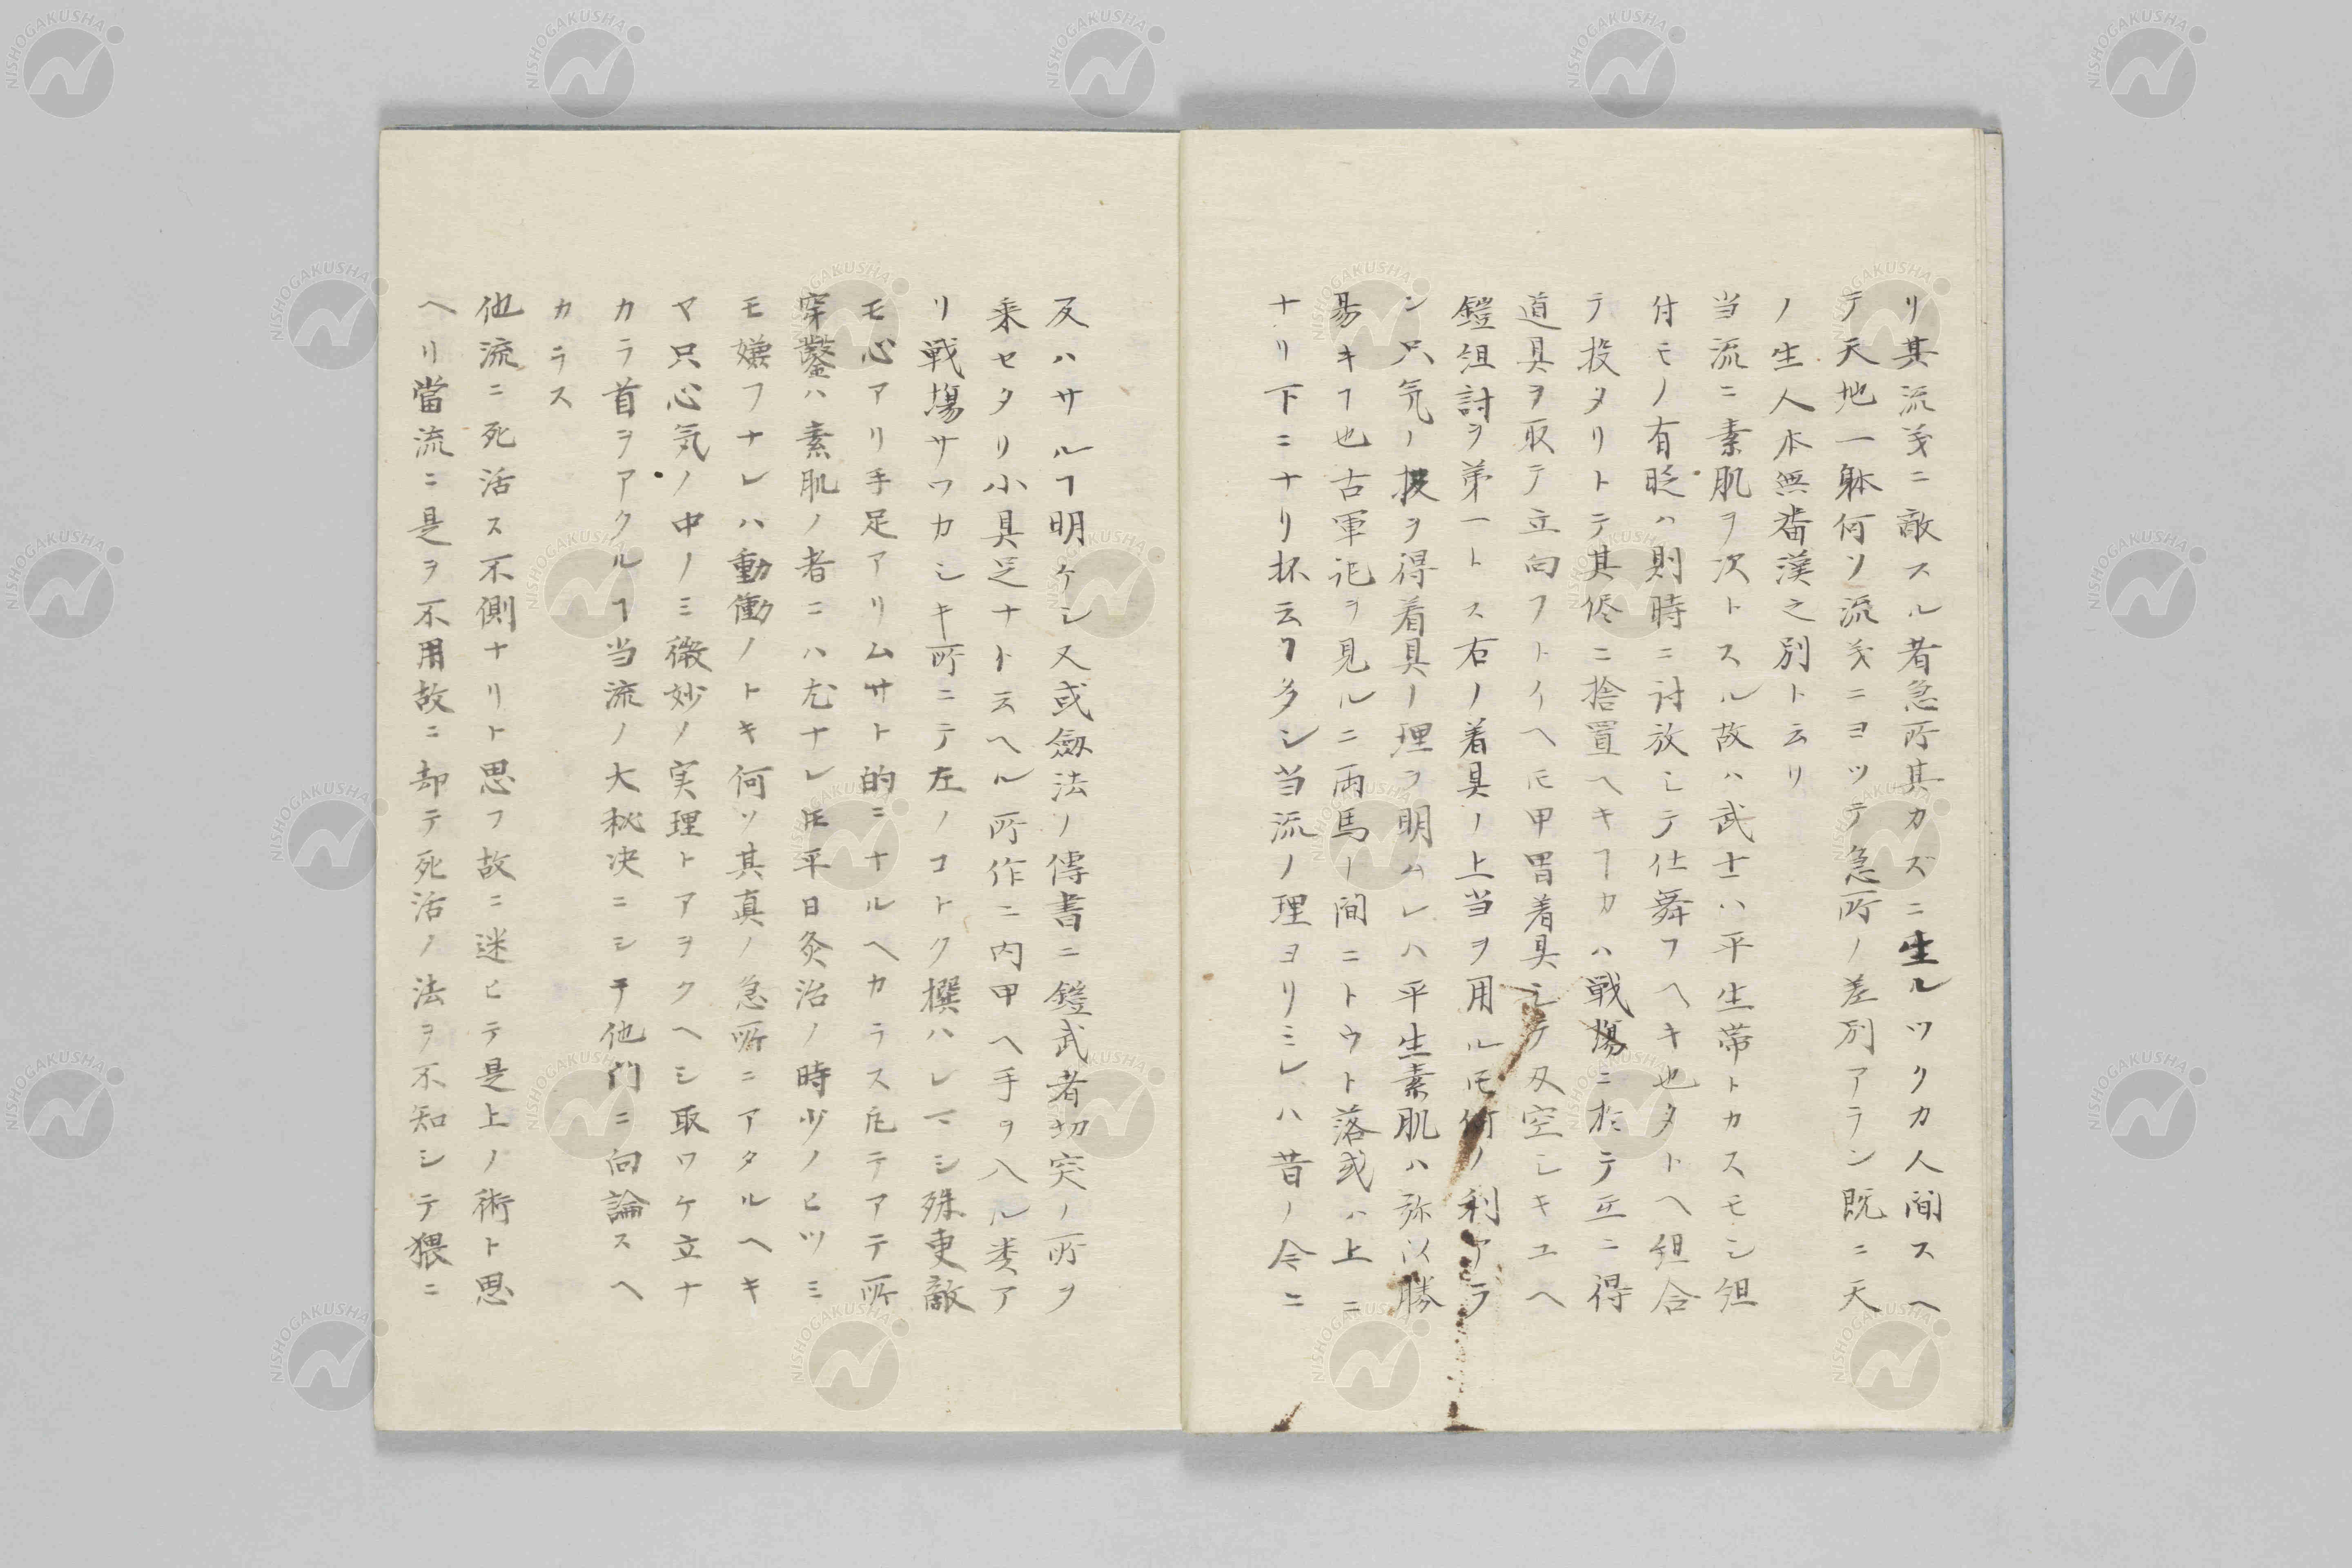 リ其流義ニ敵スル者急所其カズニ生ルツクカ人間スヘ
テ天地一躰何ソ流義ニヨツテ急所ノ差別アラン既ニ天
ノ生人本無畨漢之別ト云リ
当流ニ素肌ヲ次トスル故ハ武士ハ平生帯トカスモシ組
付モノ有眨ハ則時ニ討放シテ仕舞フヘキ也タトヘ組合
テ投タリトテ其侭ニ捨置ヘキヿカハ戦場ニ於テ正ニ得
道具ヲ取テ立向フトイヘ𪜈甲冑着具シテ又空シキユヘ
鎧組討ヲ第一トス右ノ着具ノ上当ヲ用ル𪜈何ノ利アラ
ン只気ノ扱ヲ得着具ノ理ヲ明ムレハ平生素肌ハ弥以勝
易キヿ也古軍記ヲ見ルニ両馬ノ間ニトウト落或ハ上ニ
ナリ下ニナリ抔云ヿ多シ当流ノ理ヨリミレハ昔ノ今ニ
及ハサルヿ明ケシ又或劔法ノ傳書ニ鎧武者切突ノ所ヲ
乗セタリ小具足ナト云ヘル所作ニ内甲ヘ手ヲ入ル類ア
リ戦場サワカシキ所ニテ左ノコトク撰ハレマシ殊更敵
モ心アリ手足アリムサト的ニナルヘカラス凡テアテ所
穿鑿ハ素肌ノ者ニハ尤ナレ𪜈平日灸治ノ時少ノヒツミ
モ嫌フナレハ動働ノトキ何ソ其真ノ急所ニアタルヘキ
マ只心気ノ中ノミ微妙ノ実理トアヲクヘシ取ワケ立ナ
カラ首ヲアクルヿ当流ノ大秘决ニシテ他門ニ向論スヘ
カラス
他流ニ死活ス不側ナリト思フ故ニ迷ヒテ是上ノ術ト思
ヘリ當流ニ是ヲ不用故ニ却テ死活ノ法ヲ不知シテ猥ニ
NISHOGAKUSHA